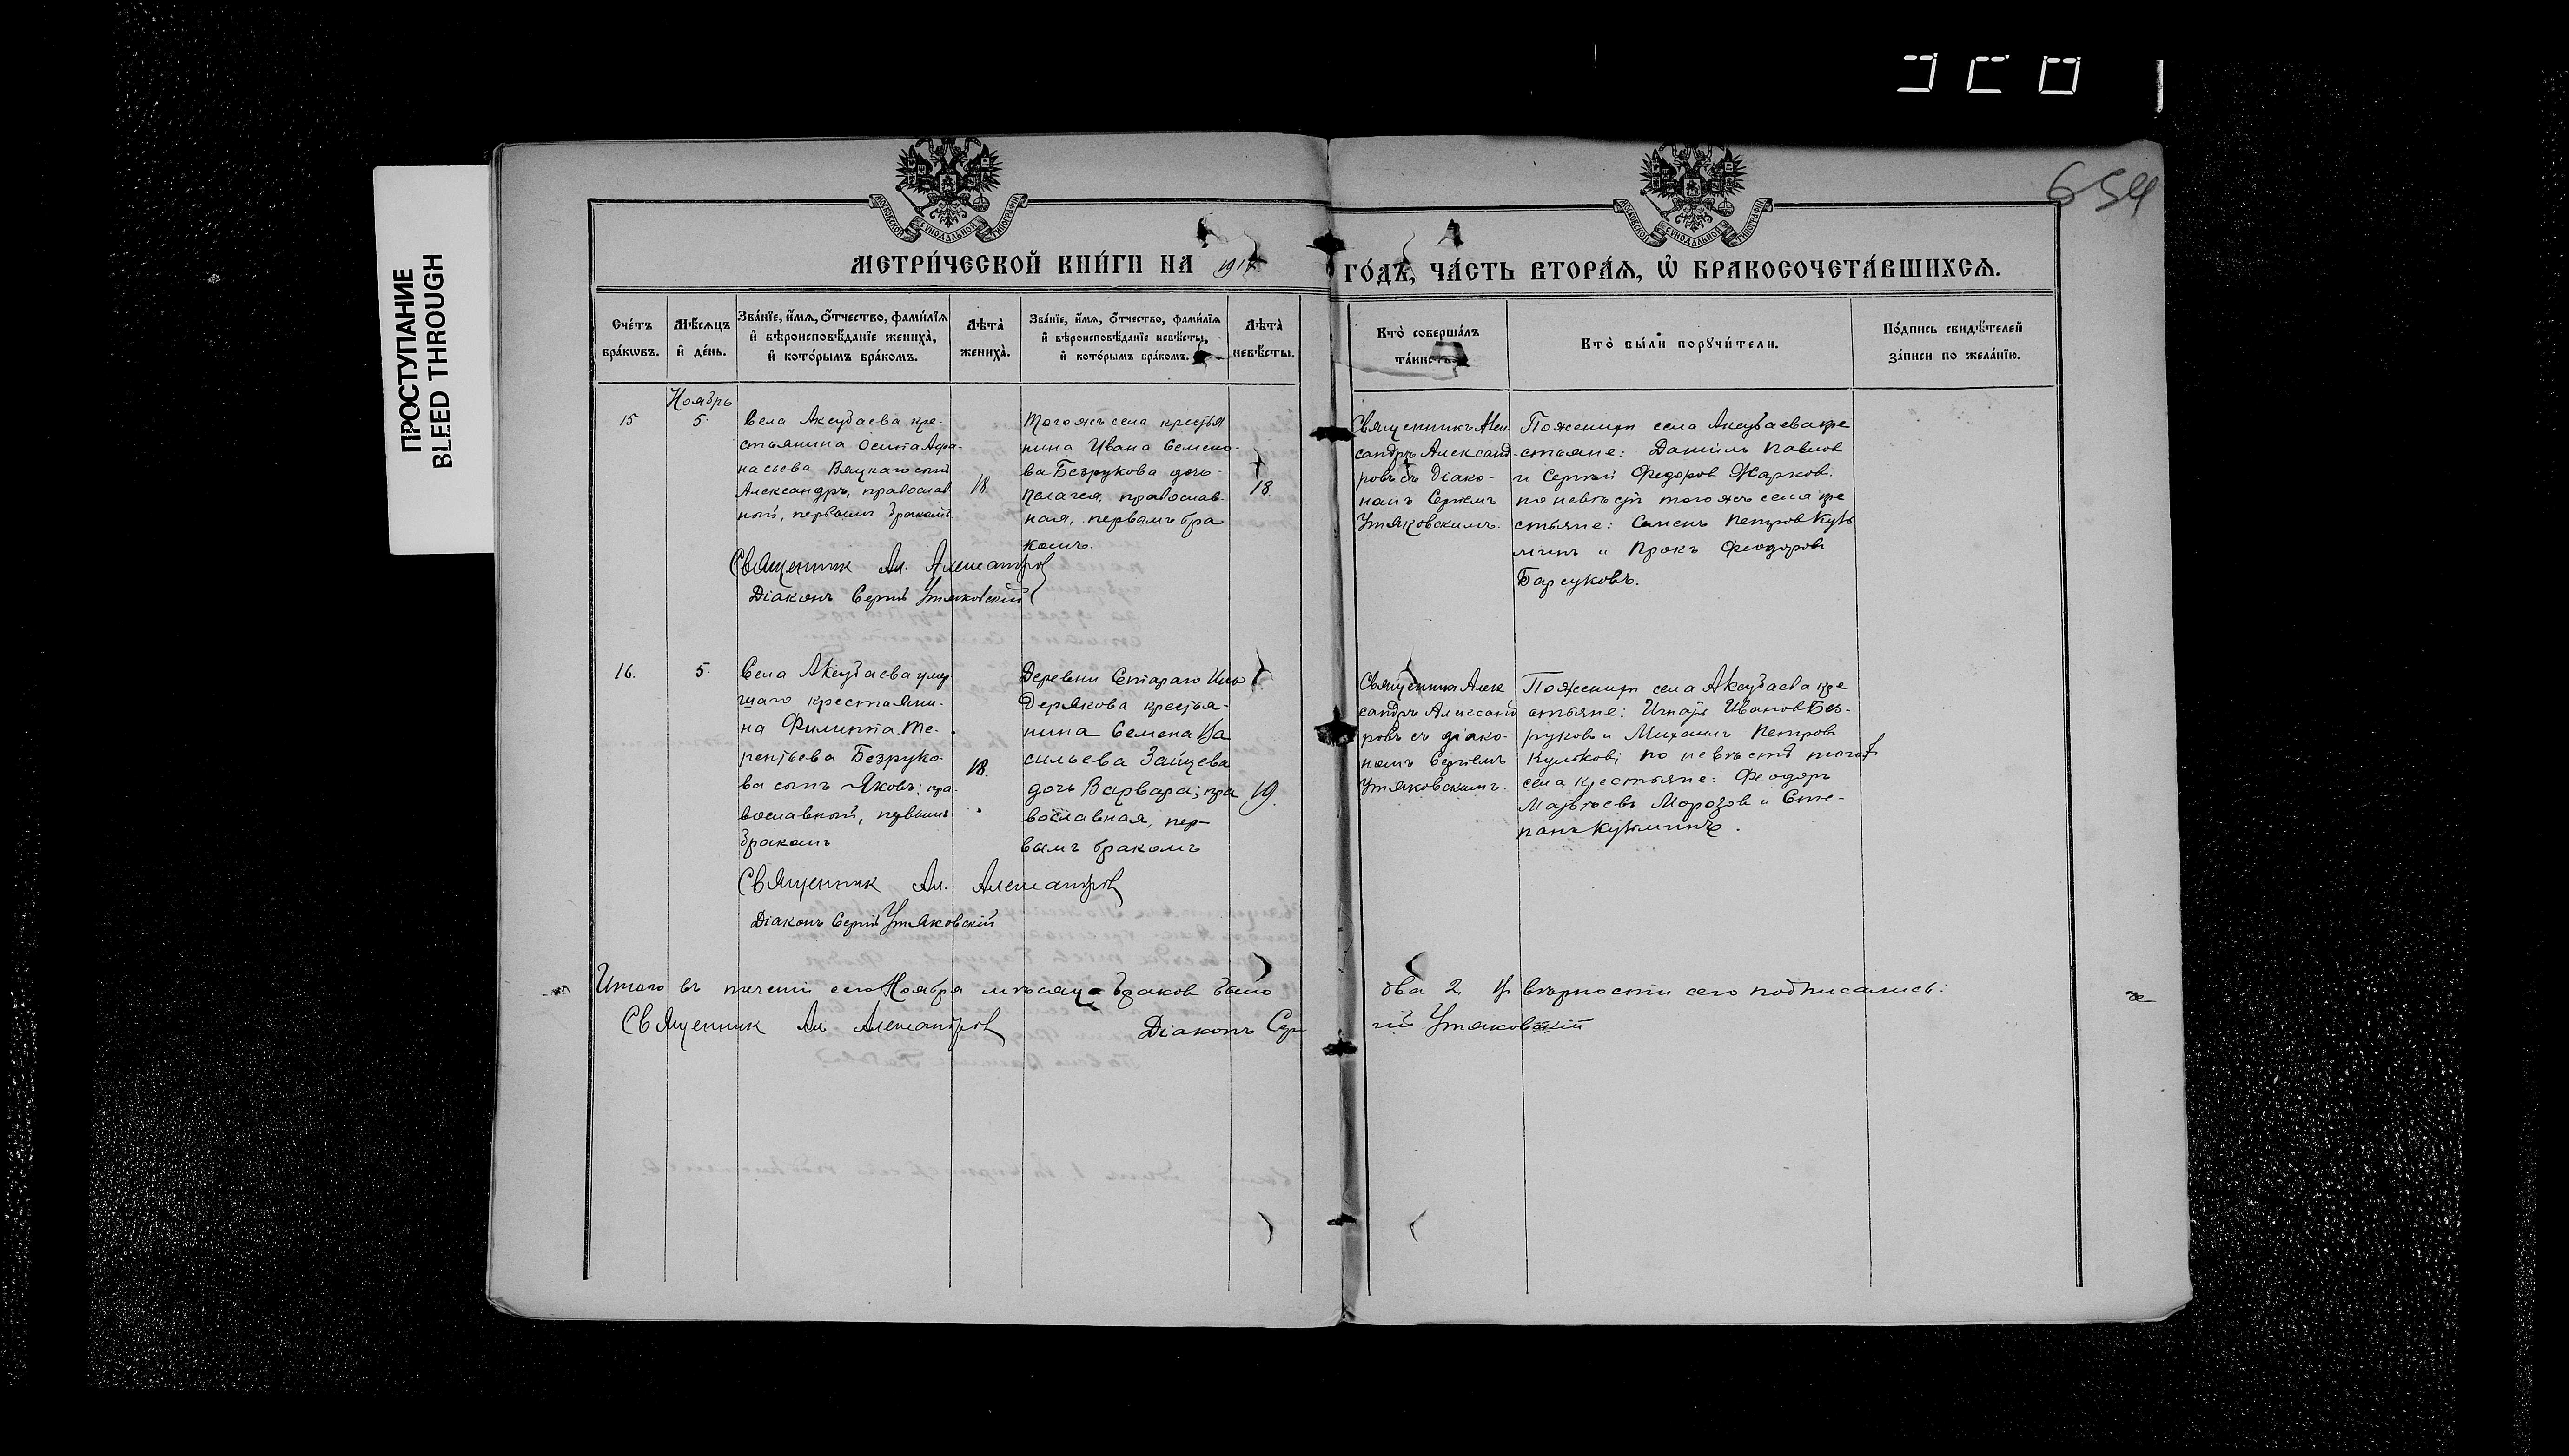 ПРОСТУПАНИЕ
BLEED THROUGH
654
МЕТРИ́ЧЕСКОЙ КНИ́ГИ НА 1917 ГО́ДЪ, ЧА́СТЬ ВТОРА́Я, Ѡ БРАКОСОЧЕТА́ВШИХСЯ.
Сче́тъ бра́кѡвъ.
Мѣ́сяцъ и де́нь.
Зва́нїе, и́мя, о́тчество, фами́лїя и вѣроисповѣ́данїе жениха̀, и кото́рымъ бра́комъ.
Лѣта̀ жениха̀.
Зва́нїе, и́мя, о́тчество, фами́лїя и вѣроисповѣ́данїе невѣ́сты, и кото́рымъ бра́комъ.
Лѣта̀ невѣ́сты.
Кто̀ соверша́лъ
Кто̀ бы́ли порꙋчи́тели.
По́дпись свидѣ́телей за́писи по жела́нїю.
Ноябрь
15
5.
Села Аксубаева кре-
стьянина Осипа Афа-
насьева Вяцкаго сынъ
Александръ, православ
ный, первымъ бракомъ
18
Тогожъ села крестья
нина Ивана Семено-
ва Безрукова дочь
Пелагея, православ-
ная, первымъ бра
комъ.
18.
Священникъ Алек
сандръ Александ-
ровъ съ Діако-
номъ Сергіемъ
Утяковскимъ.
По женихѣ села Аксубаева кре
стьяне: Даніилъ Павлов
и Сергѣй Федоров Жарков.
по невѣстѣ тогожъ села кре
стьяне: Семенъ Петров Кузь
минъ и Прокъ Феодоровъ
Барсуковъ.
Священник Ал. Александров
Діаконъ Сергій Утяковскій
16.
5.
Села Аксубаева умер
шаго крестьяни-
на Филиппа Те-
рентьева Безруко-
ва сынъ Яковъ, пра-
вославный, первымъ
бракомъ
18.
Деревни Стараго Иль
Дерякова крестья-
нина Семена Ва
сильева Зайцева
дочь Варвара, пра
вославная, пер-
вымъ бракомъ
19.
Священникъ Алек
сандръ Александ
ровъ съ діако-
номъ Сергіемъ
Утяковскимъ.
По женихѣ села Аксубаева кре
стьяне: Игнатій Иванов Без-
руковъ и Михаилъ Петров
Кульков; по невѣстѣ того ж
села крестьяне: Феодоръ
Матвѣевъ Морозов и Сте-
панъ Кузьминъ.
Священник Ал. Александров
Діаконъ Сергій Утяковскій
Итого въ теченіи сего Ноября мѣсяца браков было два 2. Въ вѣрности сего подписались:
Священник Ал Александров Діаконъ Сергій Утяковскій